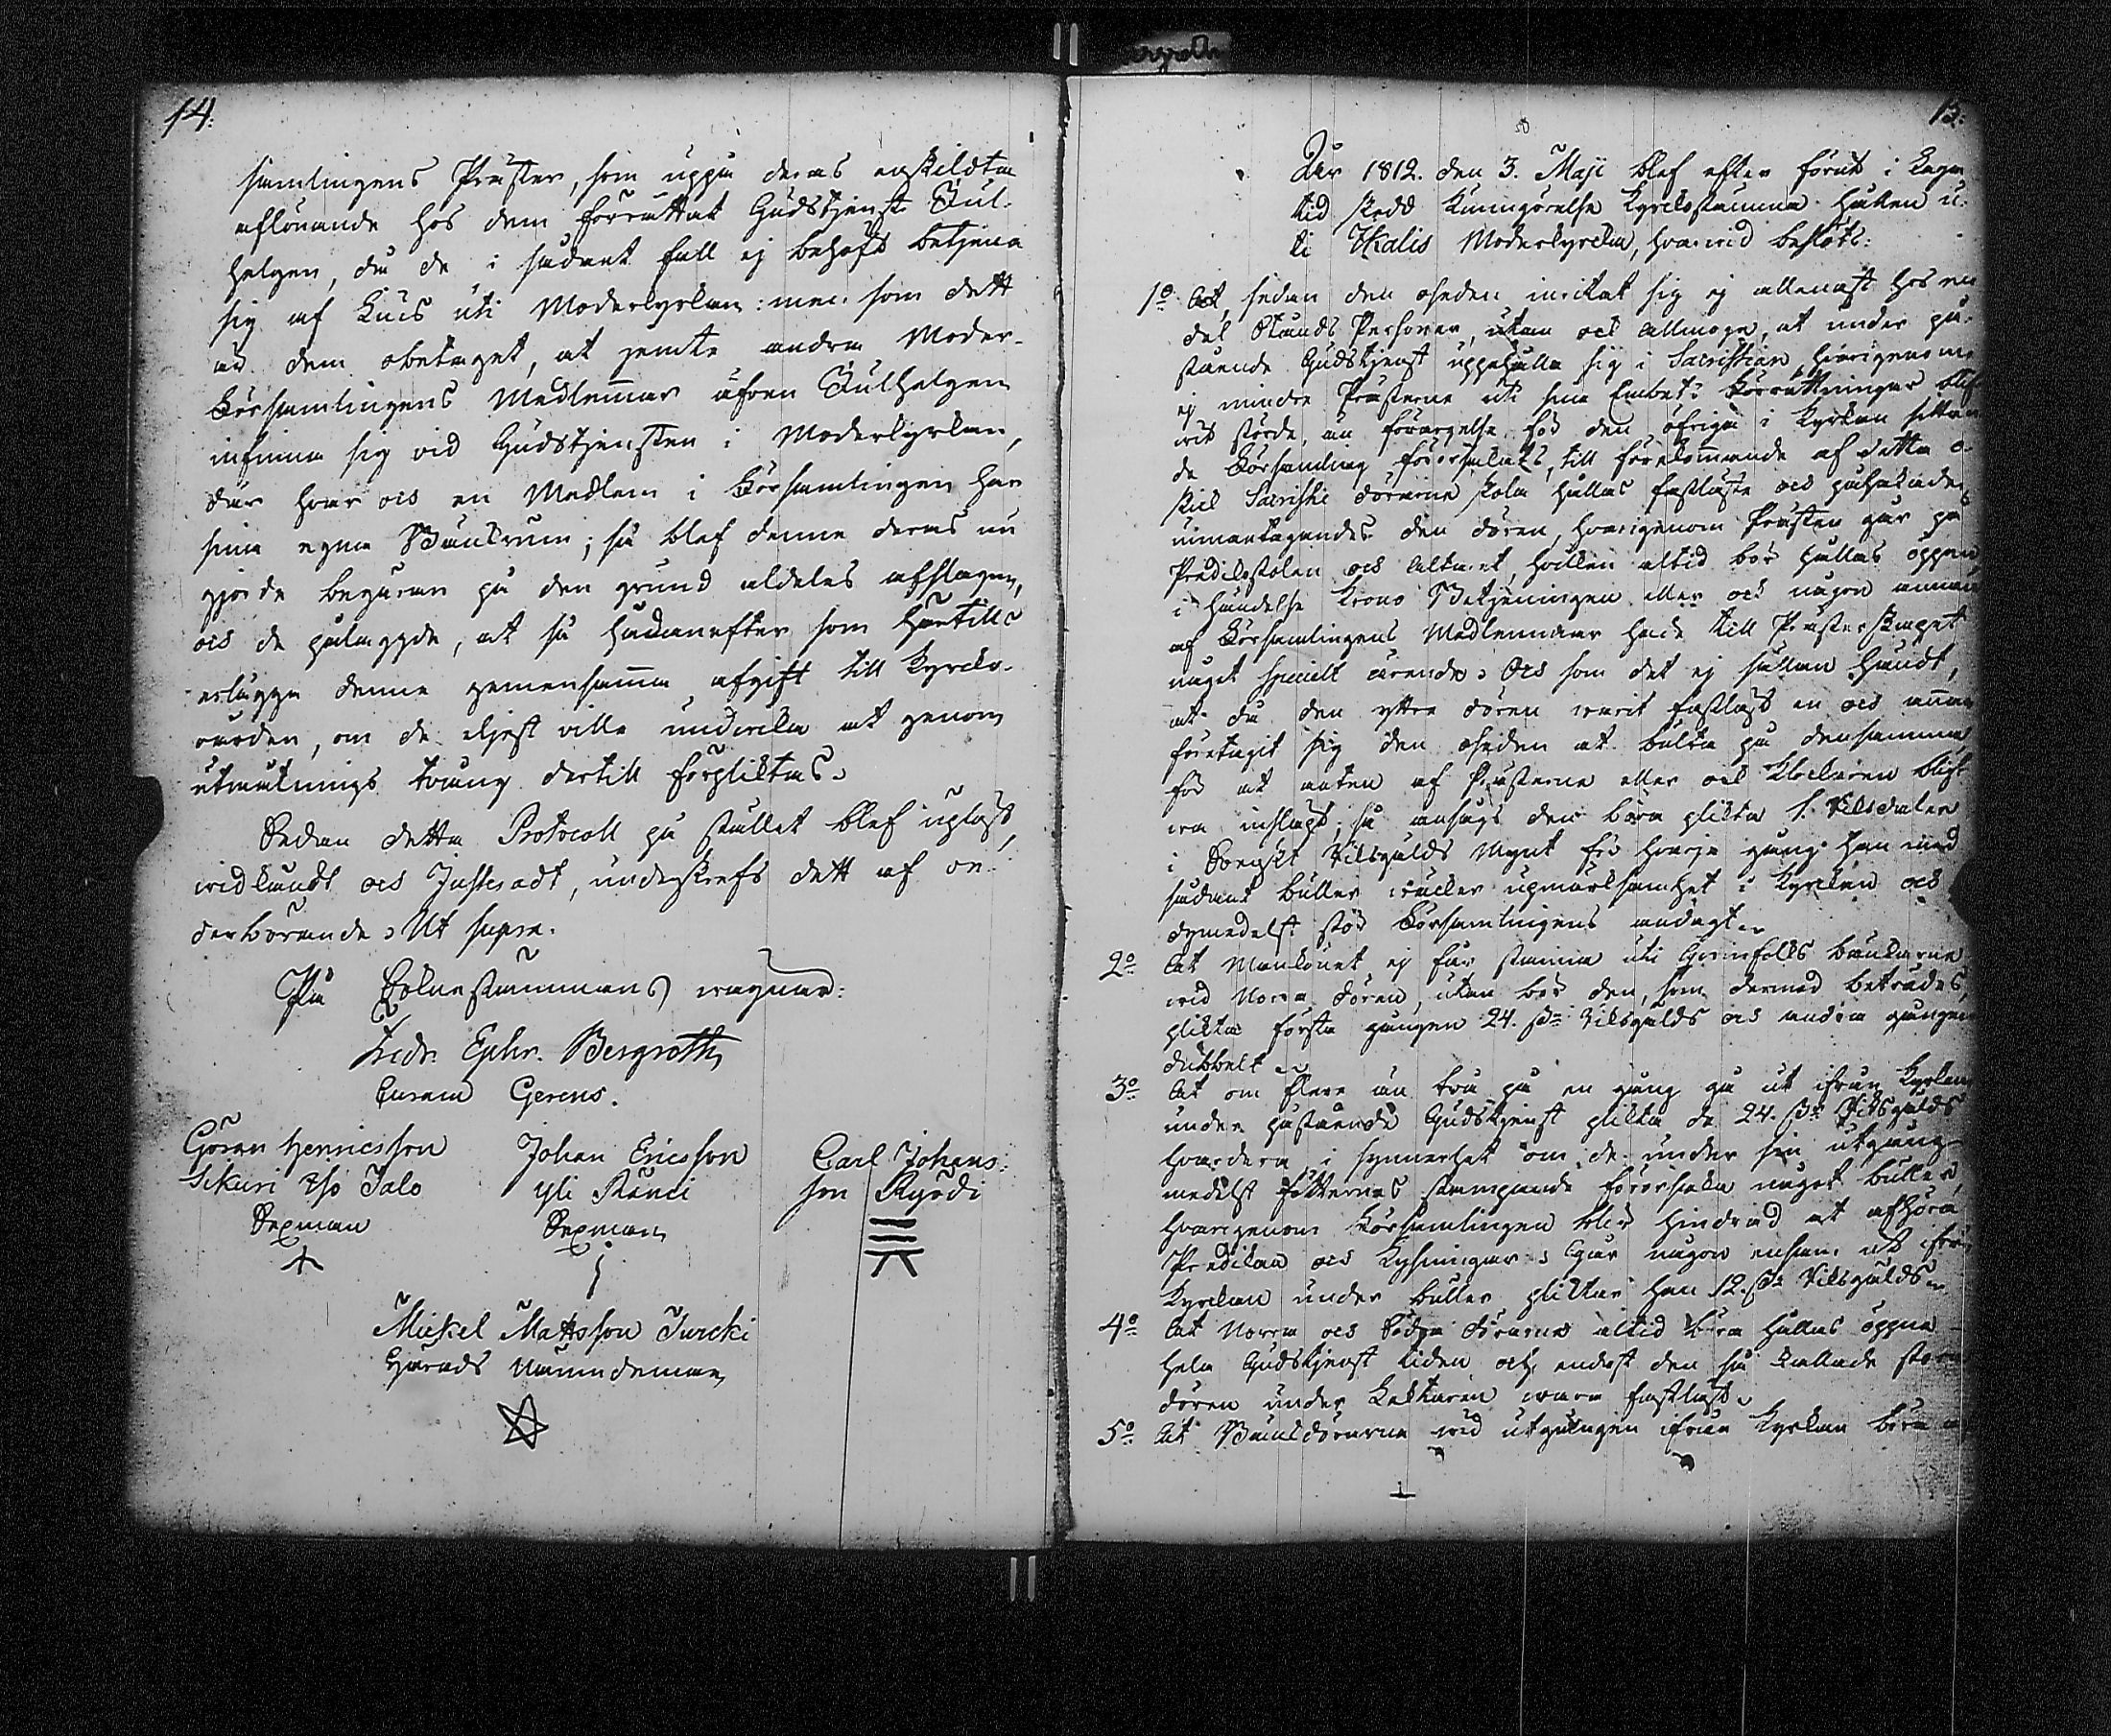 14.
samlingens Prester, som uppå deras enskildta
aflönande hos dem förrättat Gudstjenst Jul-
helgen, då de i sådant fall ej behöft betjena
sig af Ljus uti Moderkyrkan: men som dett
är dem obetaget, at jemte andra Moder-
Församlingens Medlemmar äfven Julhelgen
infinna sig vid Gudstjensten i Moderkyrkan,
där hvar och en Medlem i Församlingen har
sina egna Bänkrum; så blef denne deras nu
gjorde begäran på den grund aldeles afslagen,
och de pålagyde, at så hädanefter som härtills
erlägga denne gemensamma afgift till Kyrko-
varden, om de eljest ville undvika at genom
utmätnings tvång dertill förpliktas.
Sedan detta Protocoll på stället blef upläst,
vidkändt och Justeradt, underskrefs dett af ve-
derbörande. Ut supra.
På Sockne stämmans vägnar:
Fredr. Ephr. Bergroth,
Curam Gerens.
Göran Henricsson Johan Ericsson Carl Johans-
Sikuri t/o Jalo Yli Röncki son Kyrödi
Sexman Sexman
Mickel Mattsson Turcki
Härads Nämndeman
15.
År 1812. den 3. Maji blef efter förut i Laga
tid skedd Kungörelse Kyrkostämma hållen u-
ti Ikalis Moderkyrcka, hvarvid beslöts:
1o At, sedan den oseden inritat sig ej allenast hos en
del Stånds Personer, utan ock Allmoge, at under på-
stående Gudstjenst uppehålla sig i Sacristian, hvarigenom
ej mindre Presterne uti sina Embets Förrättningar blif
vit störde, än förargelse för den öfriga i Kyrkan sittan
de Församling förorsakats, till förekommande af detta o-
skick Sacristie dörarne skola hållas fastläste och påhakade,
unnantagandes den dören, hvarigenom Presten går på
Predikostolen och Altaret, hvilken altid bör hållas öppen
i händelse Krono Betjeningen eller ock någon annan
af Församlingens Medlemmar hade till Presterskapet
något speciellt ärende: Och som det ej sällan händt,
at då den yttre dören varit fastläst en och annan
företagit sig den oseden at bulta på densamma,
för at anten af Presterne eller ock Klockaren blif-
va inslapt; så ansågs den böra plikta 1. Riksdaler
i Svenskt Riksgälds Mynt för hvarje gång han med
sådant buller väcker upmärksamhet i Kyrckan och
dymedelst stör Församlingens andagt.
2o At Mankönet ej får stanna uti Qvinfolks bänkarne
vid Norra dören, utan bör den, som dermed beträdes,
plikta första gången 24. sk. Riksgälds och andra gången
dubbelt
3o At om flere än två på en gång gå ut ifrån Kyrkan
under påstående Gudstjenst plikta de 24. sk. Riksgälds
hvardera i synnerhet om de under sin utgång
medelst föttrernas stampande förorsaka något buller,
hvarigenom Församlingen blir hindrad at afhöra
Predikan och Lysningar: Går någon ensam ut ifrån
Kyrckan under buller pliktar han 12. sk. Riksgälds
4o At Norra och Södra dörarne altid böra hållas öppna
hela Gudstjenst tiden och endast den så kallade stora
dören under Läktaren vara fastläst.
5o At Bänkdörarna vid utgången ifrån Kyrkan böra